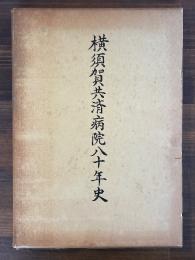 横須賀共済病院八十年史